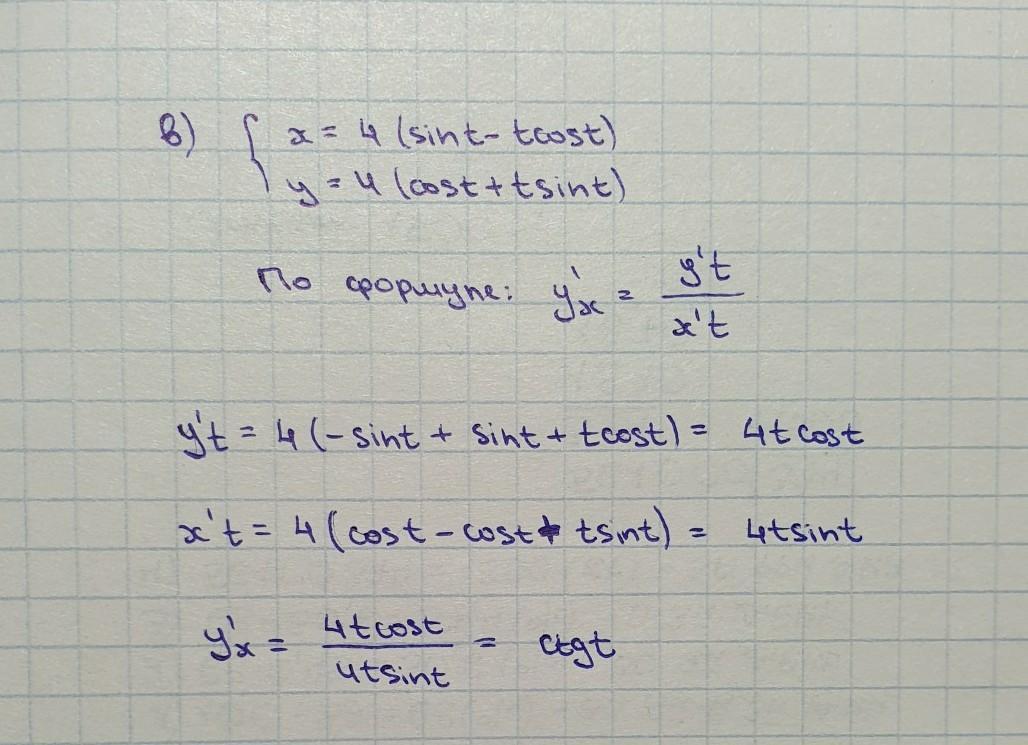 в) { x = 4 (sint - tcost)
y = 4 (cost + tsint)
По формуле: y'x = y't / x't
y't = 4 (-sint + sint + tcost) = 4tcost
x't = 4 (cost - cost + tsint) = 4tsint
y'x = 4tcost / 4tsint = ctgt